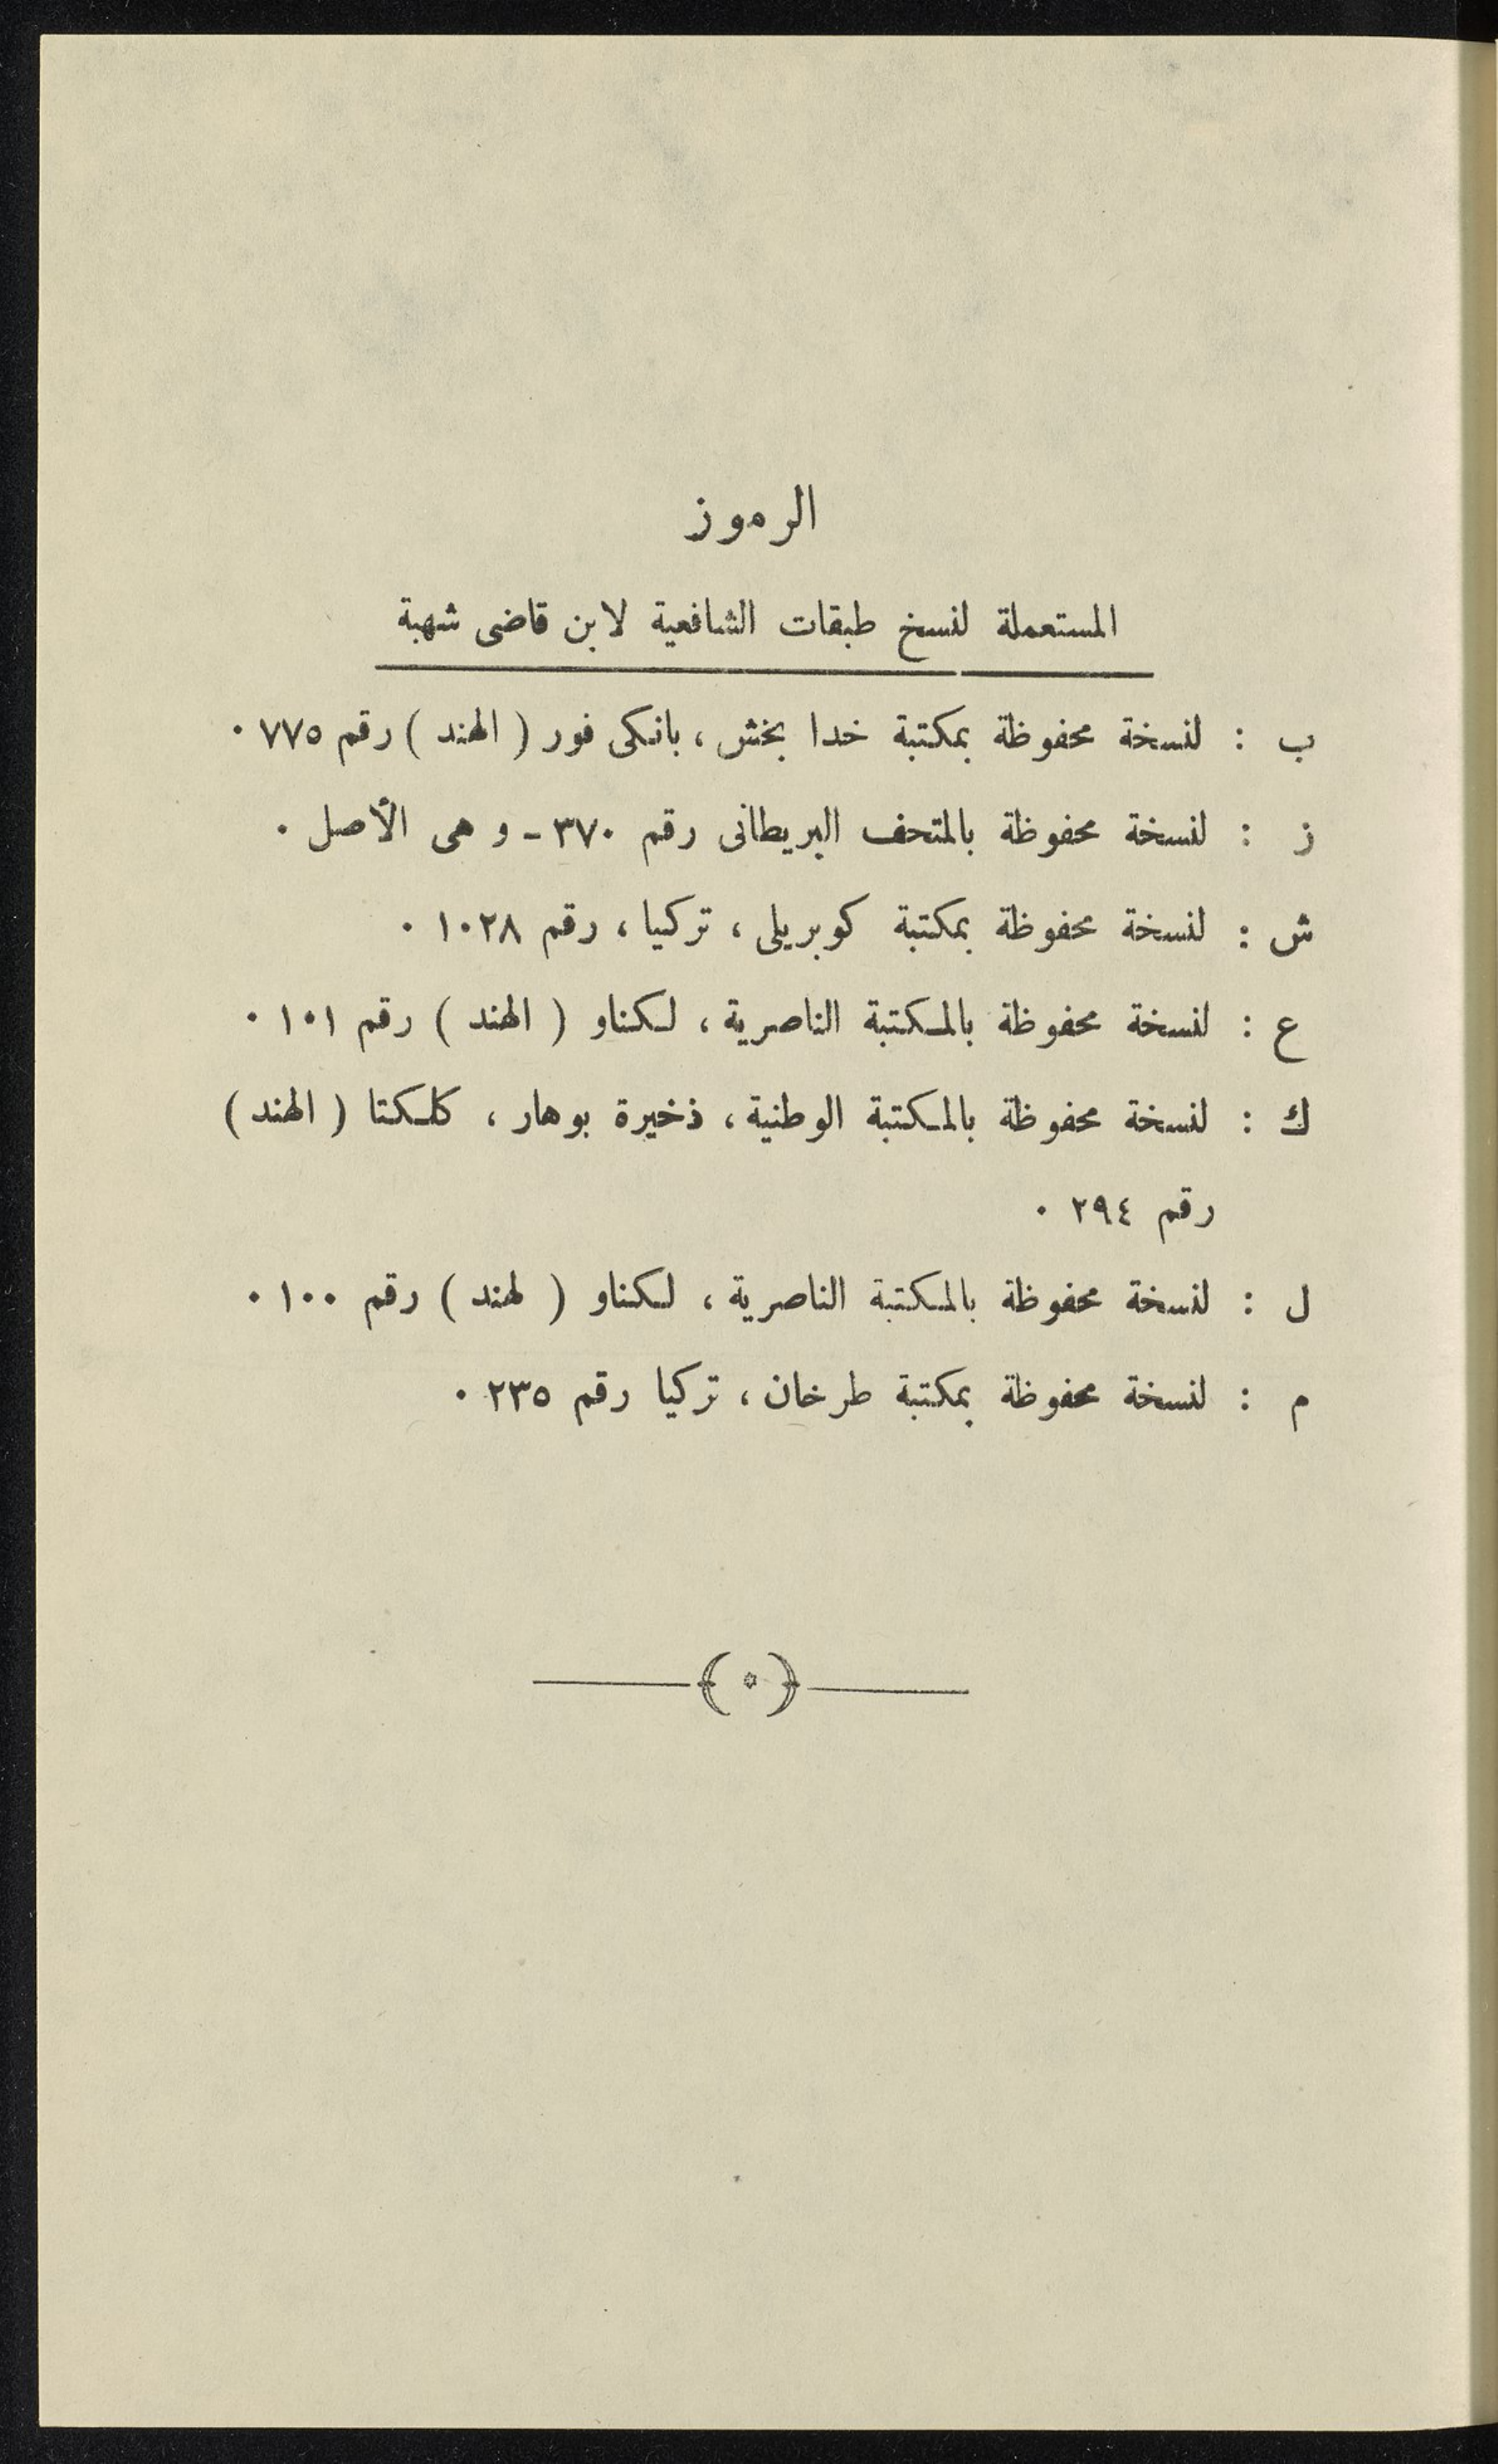 الرموز
المستعملة لنسخ طبقات الشافعية لابن قاضى شهبة
ب : لنسخة محفوظة بمكتبة خدا بخش ، بانكى فور ( الهند ) رقم ٧٧٥ .
ز : لنسخة محفوظة بالمتحف البريطانى رقم ٣٧٠ - و هى الأصل .
ش : لنسخة محفوظة بمكتبة كوبريلى ، تركيا ، رقم ١٠٢٨ .
ع : لنسخة محفوظة بالمكتبة الناصرية ، لكناو ( الهند ) رقم ١٠١ .
ك : لنسخة محفوظة بالمكتبة الوطنية ، ذخيرة بوهار ، كلكتا ( الهند )
رقم ٢٩٤ .
ل : لنسخة محفوظة بالمكتبة الناصرية ، لكناو ( لهند ) رقم ١٠٠ .
م : لنسخة محفوظة بمكتبة طرخان ، تركيا رقم ٢٣٥ .